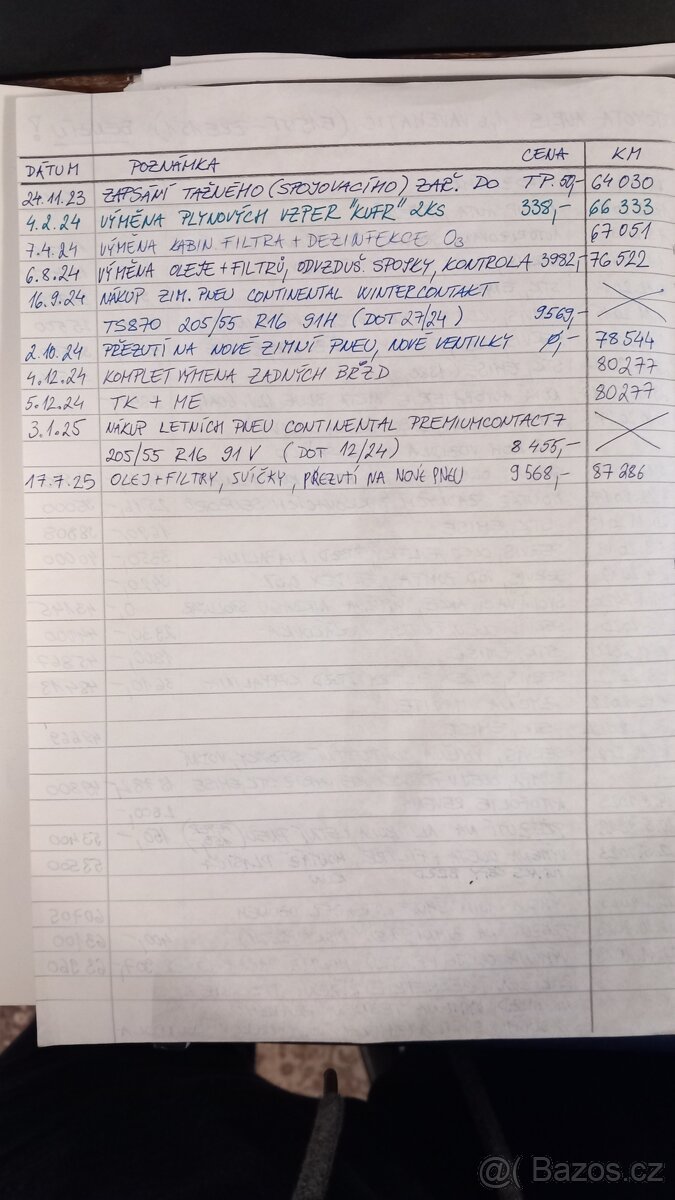 DÁTUM POZNÁMKA CENA KM
24.11.23 ZAPSÁNÍ TAŽNÉHO (SPOJOVACÍHO) ZAŘ. DO TP. 50,- 64 030
4.2.24 VÝMĚNA PLYNOVÝCH VZPER "KUFR" 2KS 338,- 66 333
7.4.24 VÝMĚNA KABIN. FILTRA + DEZINFEKCE O3 67 051
6.8.24 VÝMĚNA OLEJE + FILTRŮ, ODVZDUŠ. SPOJKY, KONTROLA 3982,- 76 522
16.9.24 NÁKUP ZIM. PNEU CONTINENTAL WINTERCONTAKT
TS870 205/55 R16 91H (DOT 27/24) 9569,-
2.10.24 PŘEZUTÍ NA NOVÉ ZIMNÍ PNEU, NOVÉ VENTILKY 0,- 78 544
4.12.24 KOMPLET VÝMENA ZADNÝCH BRZD 80277
5.12.24 TK + ME 80277
3.1.25 NÁKUP LETNÍCH PNEU CONTINENTAL PREMIUMCONTACT 7
205/55 R16 91 V (DOT 12/24) 8 455,-
17.7.25 OLEJ + FILTRY, SVÍČKY, PŘEZUTÍ NA NOVÉ PNEU 9 568,- 87 286
@ Bazos.cz